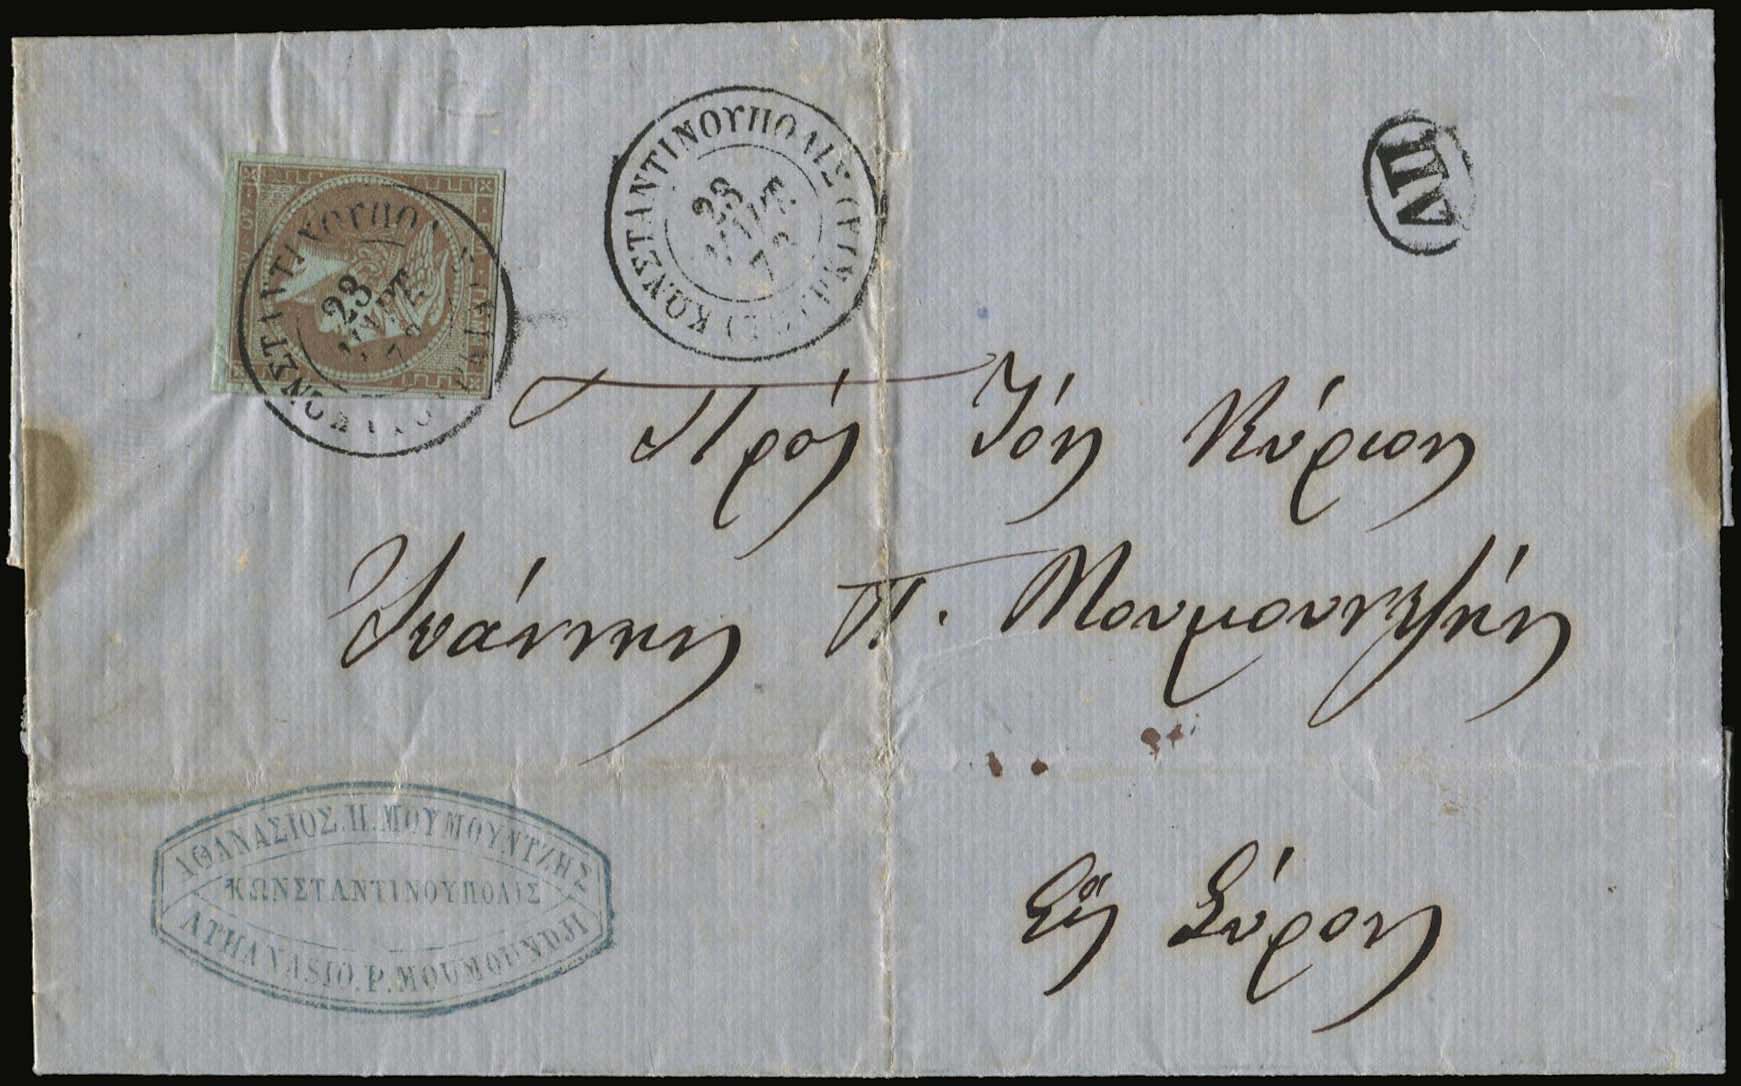 ΚΩΝΣΤΑΝΤΙΝΟΥΠΟΛΙΣ
23 ΜΑΡΤ. 72
ΚΩΝΣΤΑΝΤΙΝΟΥΠΟΛΙΣ
23 ΜΑΡΤ.
ΔΠ
Πρός Τόν Κύριον
Ιωάννην Π. Μουμουντζήν
Εἰς Σύρον
ΑΘΑΝΑΣΙΟΣ.Π.ΜΟΥΜΟΥΝΤΖΗΣ
ΚΩΝΣΤΑΝΤΙΝΟΥΠΟΛΙΣ
ATHANASIO.P.MOUMOUNDJI